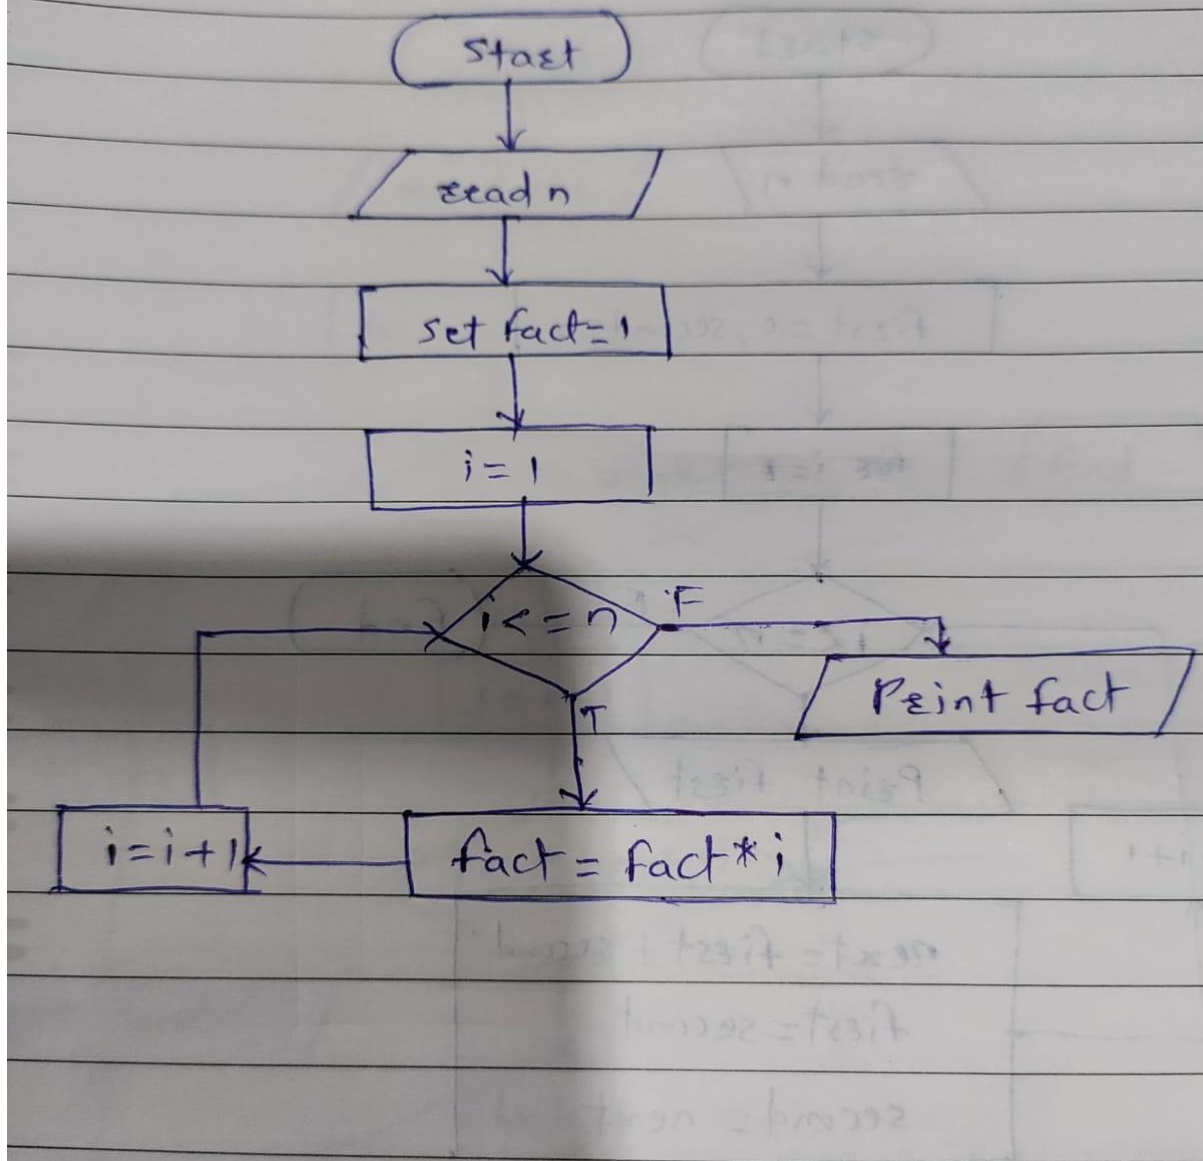 Start
read n
set fact=1
i=1
i<=n
F
T
Print fact
fact = fact*i
i=i+1